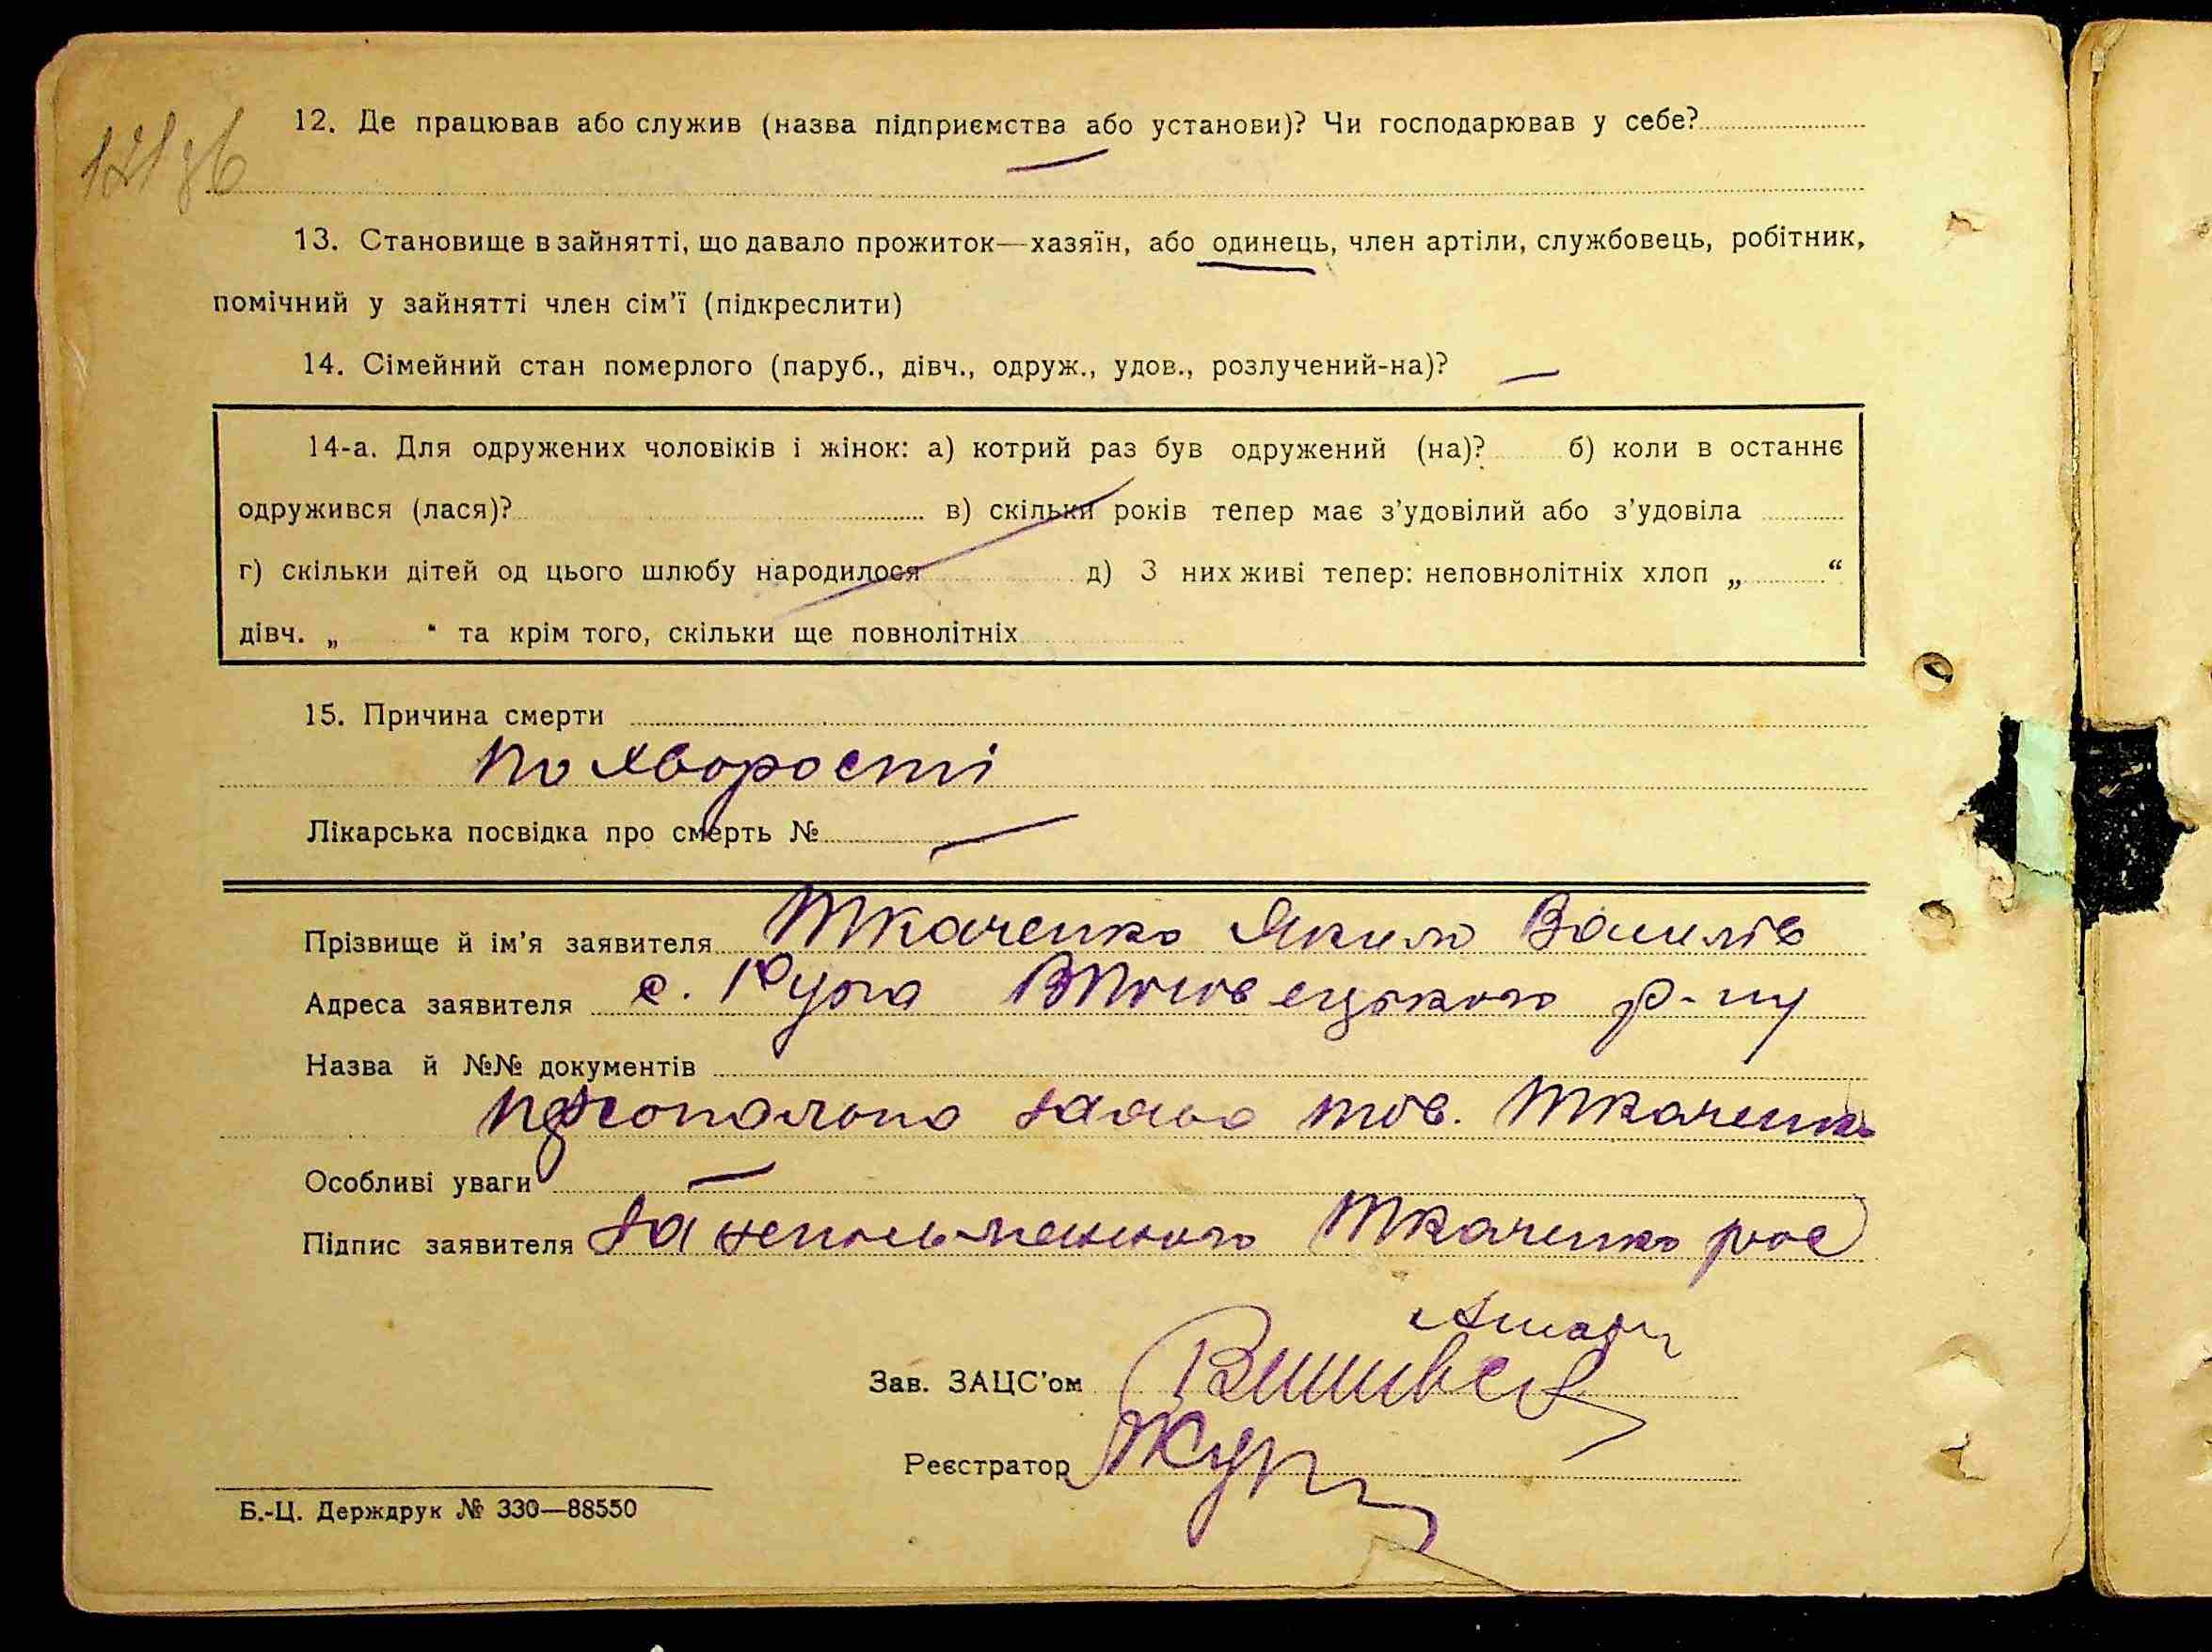 121 зв
12. Де працював або служив (назва підприємства або установи)? Чи господарював у себе?
13. Становище в зайнятті, що давало прожиток—хазяїн, або одинець, член артіли, службовець, робітник,
помічний у зайнятті член сім'ї (підкреслити)
14. Сімейний стан померлого (паруб., дівч., одруж., удов., розлучений-на)? —
14-а. Для одружених чоловіків і жінок: а) котрий раз був одружений (на)? б) коли в останнє
одружився (лася)? в) скільки років тепер має з'удовілий або з'удовіла
г) скільки дітей од цього шлюбу народилося д) З них живі тепер: неповнолітніх хлоп „ “
дівч. „ “ та крім того, скільки ще повнолітніх
15. Причина смерти
по хворости
Лікарська посвідка про смерть № —
Прізвище й ім'я заявителя Ткаченко Яким Василів
Адреса заявителя с. р-ну
Назва й №№ документів
заява тов. Ткаченка
Особливі уваги —
Підпис заявителя За неписьменного Ткаченко рос
Зав. ЗАЦС'ом
Реєстратор
Б.-Ц. Держдрук № 330—88550